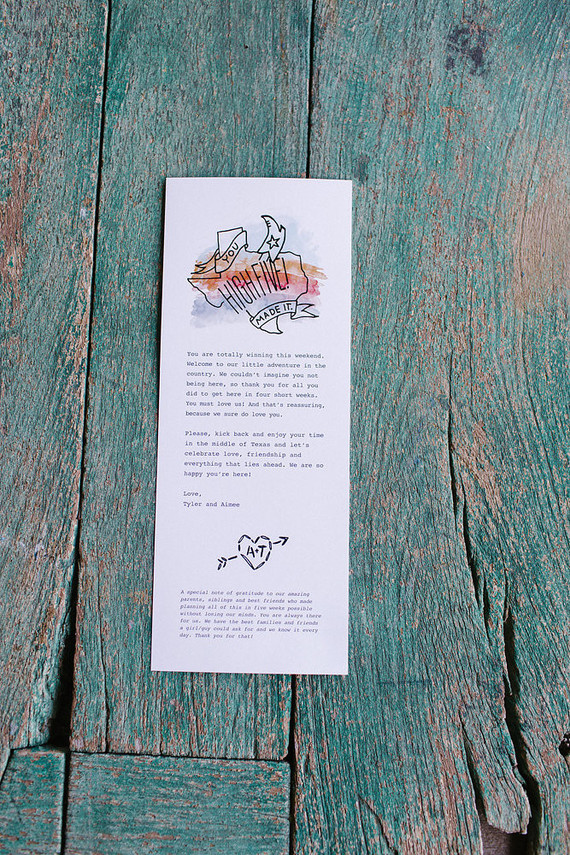 YOU
HIGH FIVE!
MADE IT.
You are totally winning this weekend.
Welcome to our little adventure in the
country. We couldn't imagine you not
being here, so thank you for all you
did to get here in four short weeks.
You must love us! And that's reassuring,
because we sure do love you.
Please, kick back and enjoy your time
in the middle of Texas and let's
celebrate love, friendship and
everything that lies ahead. We are so
happy you're here!
Love,
Tyler and Aimee
A+T
A special note of gratitude to our amazing
parents, siblings and best friends who made
planning all of this in five weeks possible
without losing our minds. You are always there
for us. We have the best families and friends
a girl/guy could ask for and we know it every
day. Thank you for that!